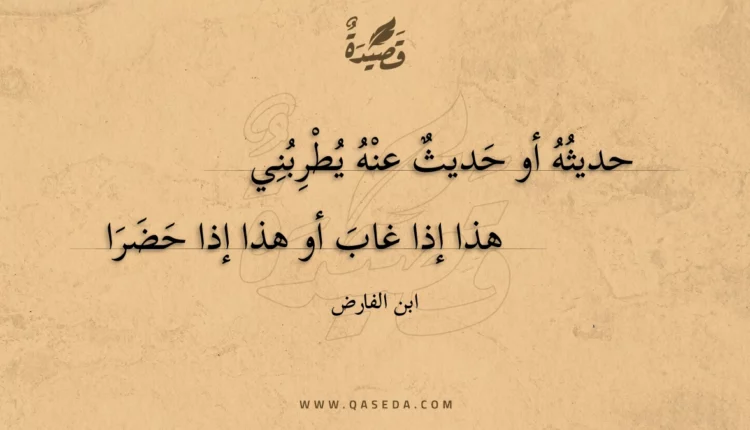 قَصِيْدَةٌ
حديثُهُ أو حَديثٌ عنْهُ يُطْرِبُنِي
هذا إذا غابَ أو هذا إذا حَضَرَا
ابن الفارض
WWW.QASEDA.COM